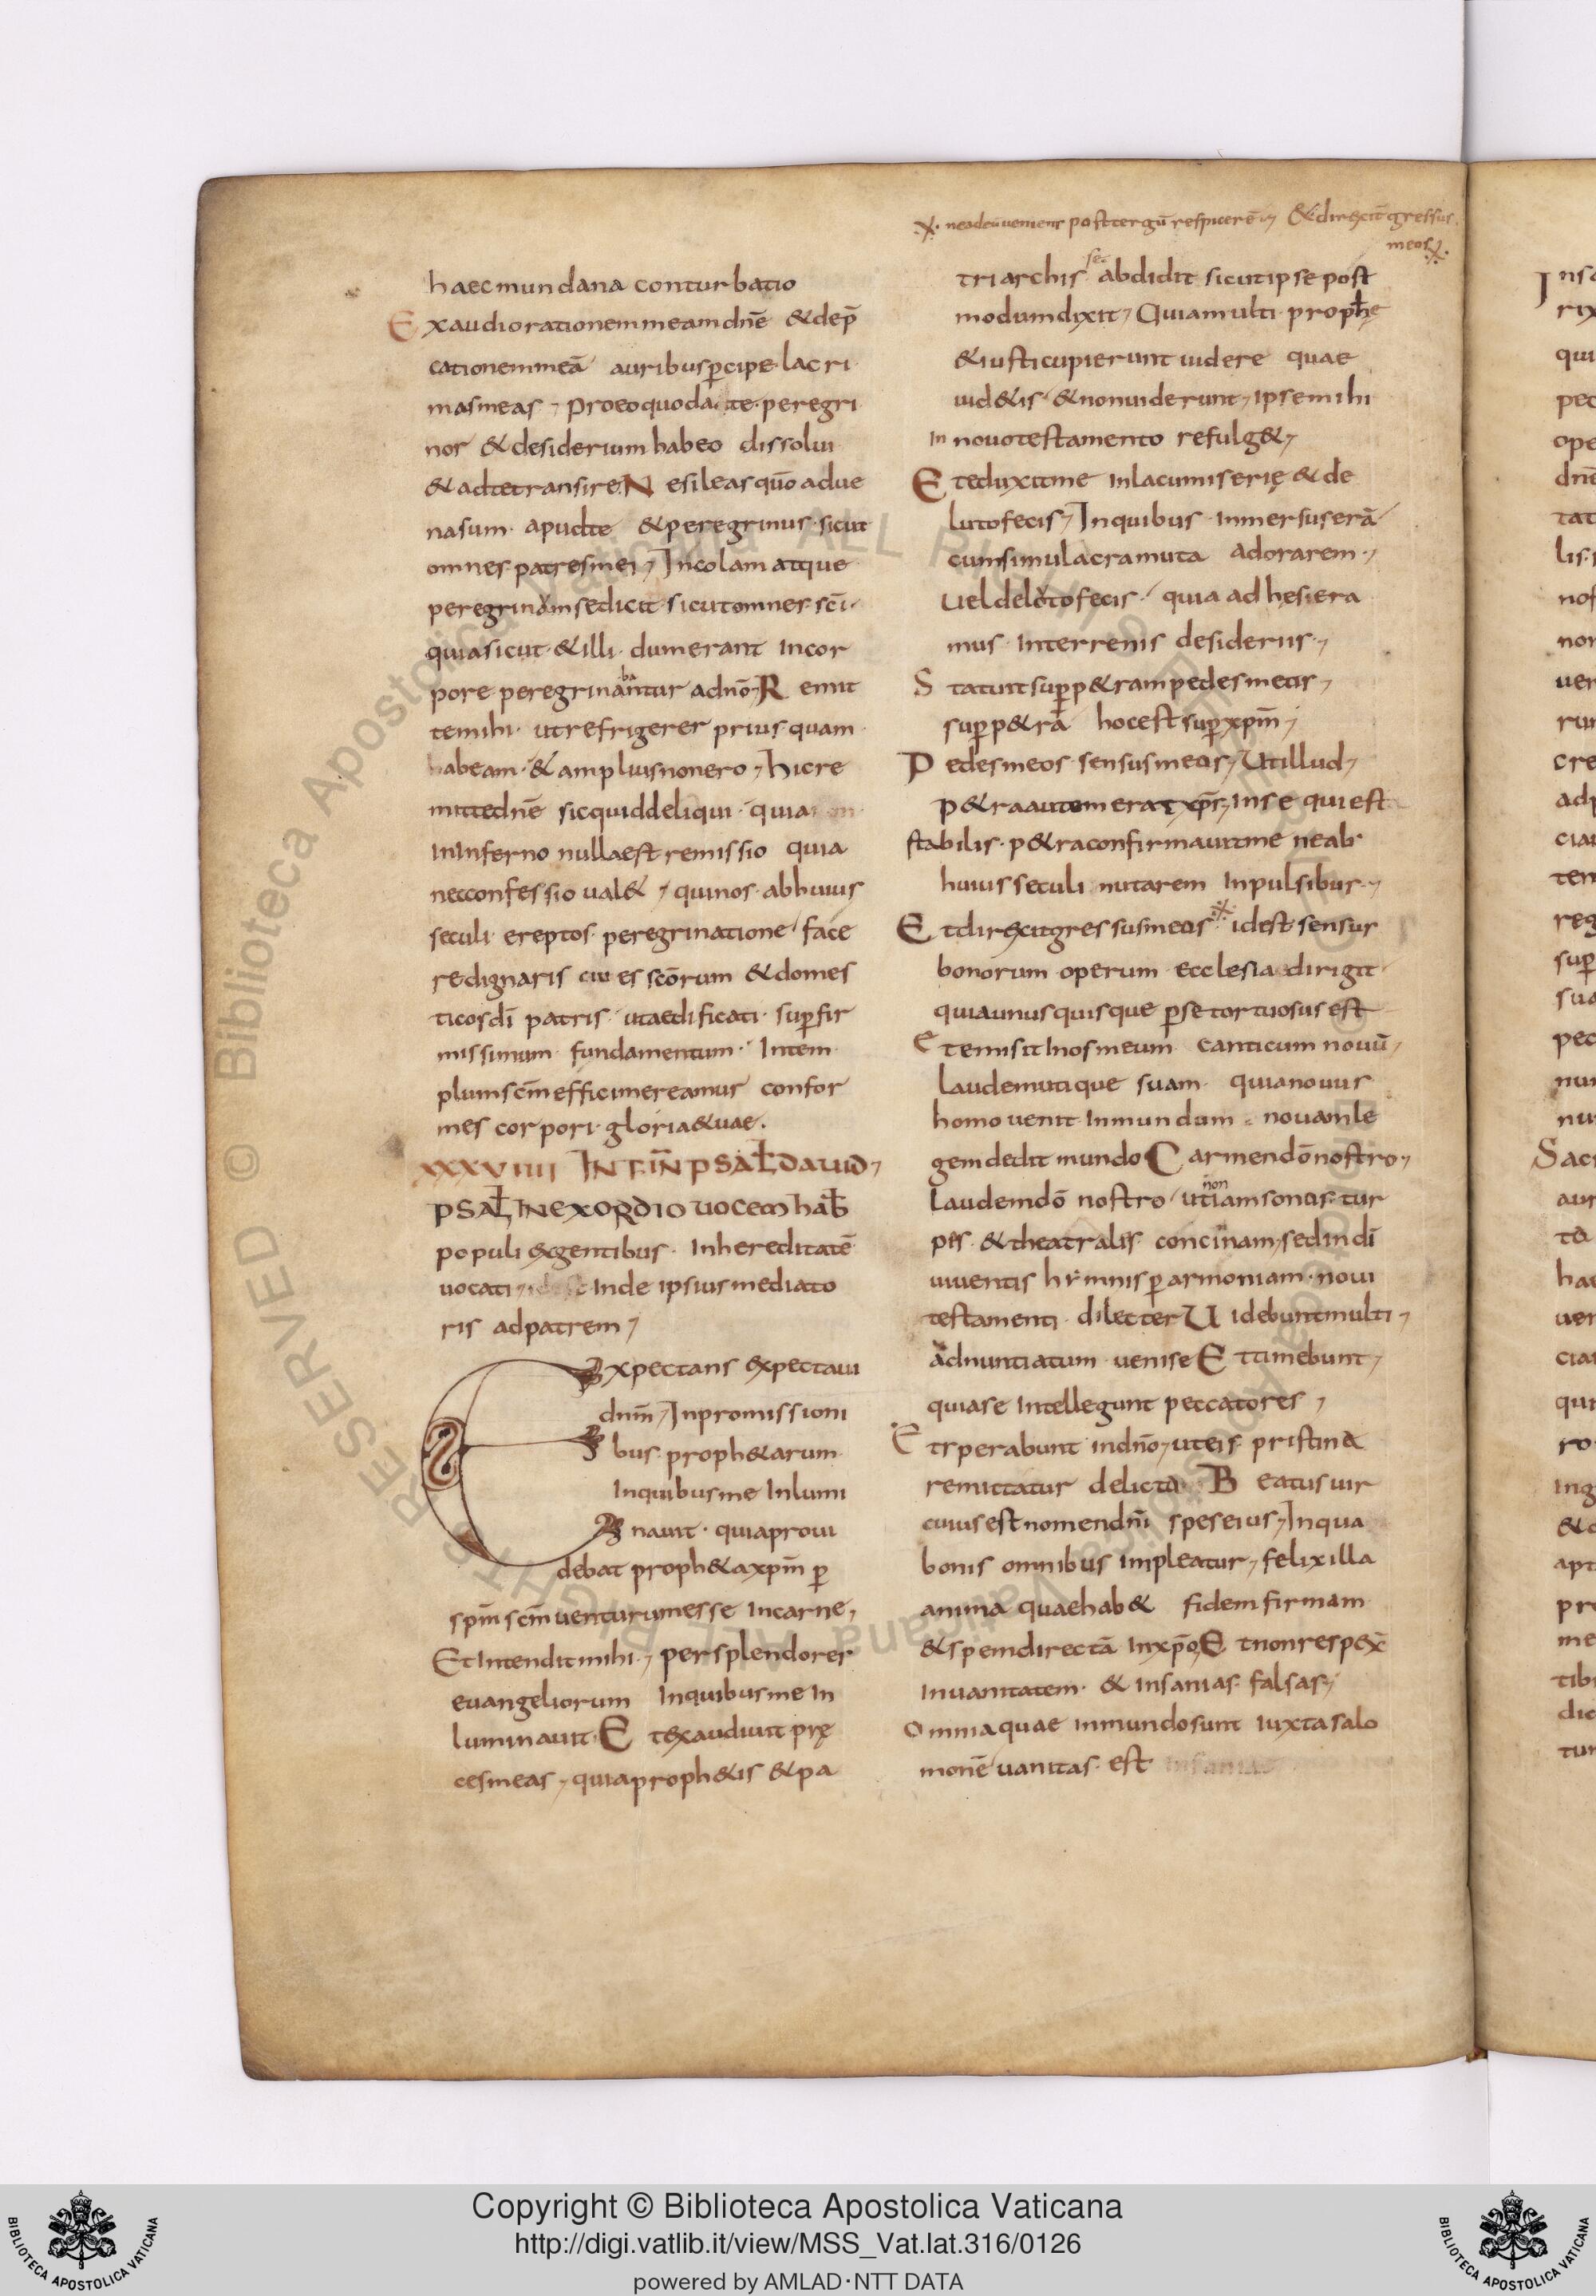 haec mundana conturbatio
Exaudi orationem meam dnē & dep̄
cationem meā auribus p̱cipe lacri
mas meas, Pro eo quod a te peregri
nor & desiderium habeo dissolui
& ad te transire, Ne sileas quō adue
na sum apud te & peregrinus sicut
omnes patres mei, Incolam atque
peregrinum se dicit sicut omnes sc̄i
quia sicut & illi dum erant in cor
pore peregrinabantur a dnō, Remit
te mihi ut refrigerer prius quam
habeam & amplius non ero, hic re
mitte dnē sic quid deliqui quia
in inferno nulla est remissio quia
nec confessio ual&, qui nos ab huius
seculi ereptos peregrinatione face
re dignaris ciues scōrum & domes
ticos dī patris ut aedificati sup̱ fir
missimum fundamentum in tem
plum sc̄m effici mereamur confor
mes corpori gloriae tuae.
XXXVIIII INT IN̄ PSAL̄ DAUID,
PSAL̄ IN EXORDIO UOCEM HAB̄
populi ex gentibus in hereditatē
uocati, inde ipsius mediato
ris ad patrem,
Expectans expectaui
dnm̄, In promissioni
bus proph&arum
in quibus me inlumi
nauit quia proui
debat proph&a xpm̄ p̱
spm̄ sc̄m uenturum esse in carne,
Et intendit mihi, per splendores
euangeliorum in quibus me in
luminauit, Et exaudiuit prę
ces meas, quia proph&is & pa
neadeuueniens post tergū respicerē, & direxit gressus
meos
triarchis abdidit sicut ipse post
sec
modum dixit, Quia multi prophe
& iusti cupierunt uidere quae
uid&is & non uiderunt, ipse mihi
in nouo testamento refulg&,
Et eduxit me in lacu miserię & de
luto fecis, In quibus inmersus erā
cum simulacra muta adorarem,
Uel de luto fecis quia adhesera
mus in terrenis desideriis,
Statuit sup̱ p&ram pedes meos,
sup̱ p&rā hoc est sup̱ xpm̄,
Pedes meos sensus meos, Ut illud,
p&ra autem erat xp̄s, in se qui est
stabilis p&ra confirmauit me ne ab
huius seculi nutarem inpulsibus,
Et direxit gressus meos id est sensus
bonorum operum ecclesiae dirigit
quia unusquisque p̱ se tortuosus est
Et emisit in os meum canticum nouū,
Laudem utique suam quia nouus
homo uenit in mundum nouam le
gem dedit mundo Carmen dō nostro,
Laudem dō nostro, ut iam non sonus tur
pis & theatralis concinnam, sed in dī
uiuentis hymnis p̱ armoniam noui
testamenti dilecter Uidebunt multi,
adnuntiatum uenise Et timebunt,
quia se intellegunt peccatores,
Et sperabunt in dnō, ut eis pristina
remittatur delicta Beatus uir
cuius est nomen dnī spes eius, In qua
bonis omnibus impleatur, felix illa
anima quae hab& fidem firmam
& spem directā in xpō, Et non respex̄
in uanitatem & insanias falsas,
Omnia quae in mundo sunt iuxta salo
monē uanitas est
© Biblioteca Apostolica Vaticana ALL RIGHTS RESERVED
Copyright © Biblioteca Apostolica Vaticana
http://digi.vatlib.it/view/MSS_Vat.lat.316/0126
powered by AMLAD·NTT DATA
BIBLIOTECA APOSTOLICA VATICANA
BIBLIOTECA APOSTOLICA VATICANA